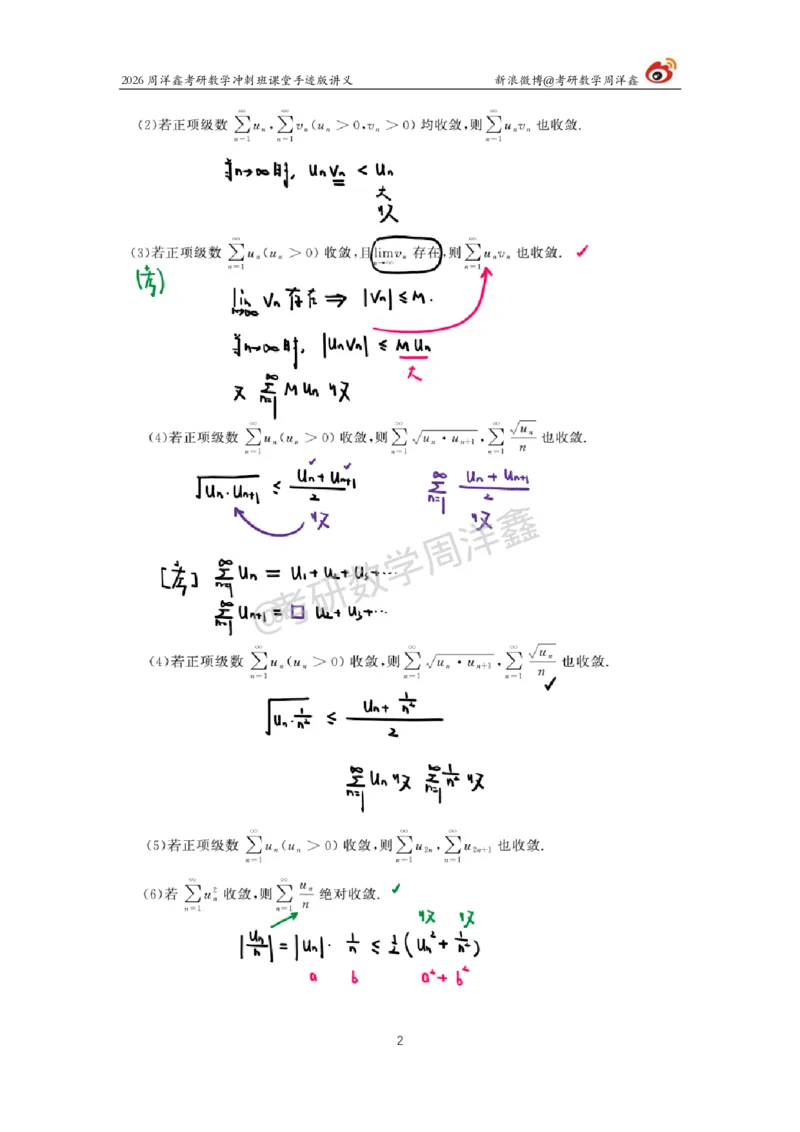 2026周洋鑫考研数学冲刺班课堂手迹版讲义 新浪微博@考研数学周洋鑫
(2)若正项级数 ∑_{n=1}^{∞} u_n, ∑_{n=1}^{∞} v_n (u_n > 0, v_n > 0) 均收敛,则 ∑_{n=1}^{∞} u_n v_n 也收敛.
当n→∞时, u_n v_n < u_n
大
收
(3)若正项级数 ∑_{n=1}^{∞} u_n (u_n > 0) 收敛,且 lim_{n→∞} v_n 存在,则 ∑_{n=1}^{∞} u_n v_n 也收敛. ✓
(考)
lim_{n→∞} v_n 存在 ⇒ |v_n| ≤ M.
当n→∞时, |u_n v_n| ≤ M u_n
大
又 ∑_{n=1}^{∞} M u_n 收
(4)若正项级数 ∑_{n=1}^{∞} u_n (u_n > 0) 收敛,则 ∑_{n=1}^{∞} √(u_n · u_{n+1}), ∑_{n=1}^{∞} √u_n / n 也收敛.
√(u_n · u_{n+1}) ≤ (u_n + u_{n+1}) / 2 ∑_{n=1}^{∞} (u_n + u_{n+1}) / 2
收 收
[考] ∑_{n=1}^{∞} u_n = u_1 + u_2 + u_3 + ⋯
∑_{n=1}^{∞} u_{n+1} = □ u_2 + u_3 + ⋯
@考研数学周洋鑫
(4)若正项级数 ∑_{n=1}^{∞} u_n (u_n > 0) 收敛,则 ∑_{n=1}^{∞} √(u_n · u_{n+1}), ∑_{n=1}^{∞} √u_n / n 也收敛. ✓
√(u_n · 1/n²) ≤ (u_n + 1/n²) / 2
∑_{n=1}^{∞} u_n 收 ∑_{n=1}^{∞} 1/n² 收
(5)若正项级数 ∑_{n=1}^{∞} u_n (u_n > 0) 收敛,则 ∑_{n=1}^{∞} u_{2n}, ∑_{n=1}^{∞} u_{2n+1} 也收敛.
(6)若 ∑_{n=1}^{∞} u_n² 收敛,则 ∑_{n=1}^{∞} u_n / n 绝对收敛. ✓
收 收
|u_n / n| = |u_n| · 1/n ≤ 1/2 (u_n² + 1/n²)
a b a² + b²
2